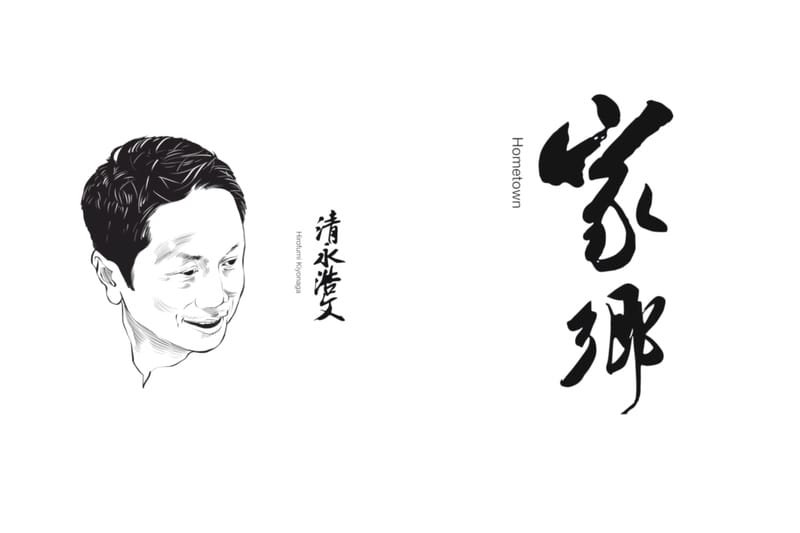 清永浩文
Hirofumi Kiyonaga
家郷
Hometown